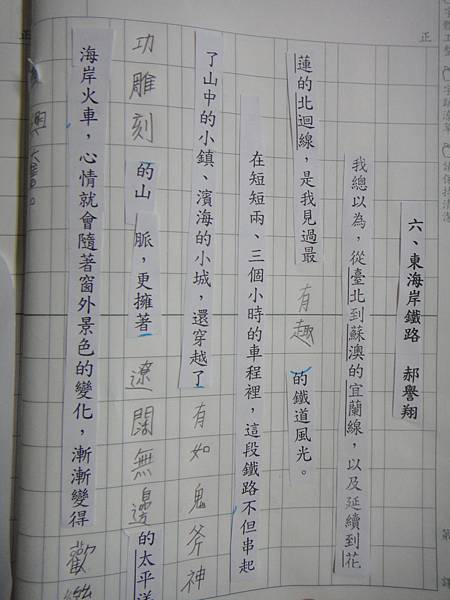 六、東海岸鐵路 郝譽翔
我總以為，從臺北到蘇澳的宜蘭線，以及延續到花
蓮的北迴線，是我見過最有趣的鐵道風光。
在短短兩、三個小時的車程裡，這段鐵路不但串起
了山中的小鎮、濱海的小城，還穿越了有如鬼斧神
功雕刻的山脈，更擁著遼闊無邊的太平洋
海岸火車，心情就會隨著窗外景色的變化，漸漸變得歡樂